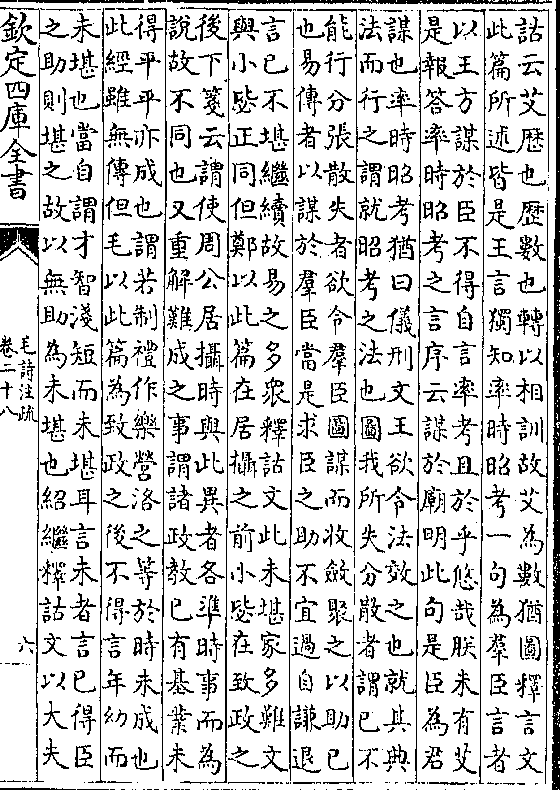 詁云艾歴也歴數也轉以相訓故艾為數猶圖釋言文
此篇所述皆是王言獨知率時昭考一句為羣臣言者
以王方謀於臣不得自言率考且於乎悠哉朕未有艾
是報答率時昭考之言序云謀於廟明此句是臣為君
謀也率時昭考猶曰儀刑文王欲令法效之也就其典
法而行之謂就昭考之法也圖我所失分散者謂已不
能行分張散失者欲令羣臣圖謀而收斂聚之以助已
也易傳者以謀於羣臣當是求臣之助不宜過自謙退
言已不堪繼續故易之多衆釋詁文此未堪家多難文
與小毖正同但鄭以此篇在居攝之前小毖在致政之
後下箋云謂使周公居攝時與此異者各準時事而為
說故不同也又重解難成之事謂諸政教已有基業未
得平平亦成也謂若制禮作樂營洛之等於時未成也
此經雖無傳但毛以此篇為致政之後不得言年幼而
未堪也當自謂才智淺短而未堪耳言未者言已得臣
之助則堪之故以無助為未堪也紹繼釋詁文以大夫
欽定四庫全書
毛詩注疏
卷二十八
六